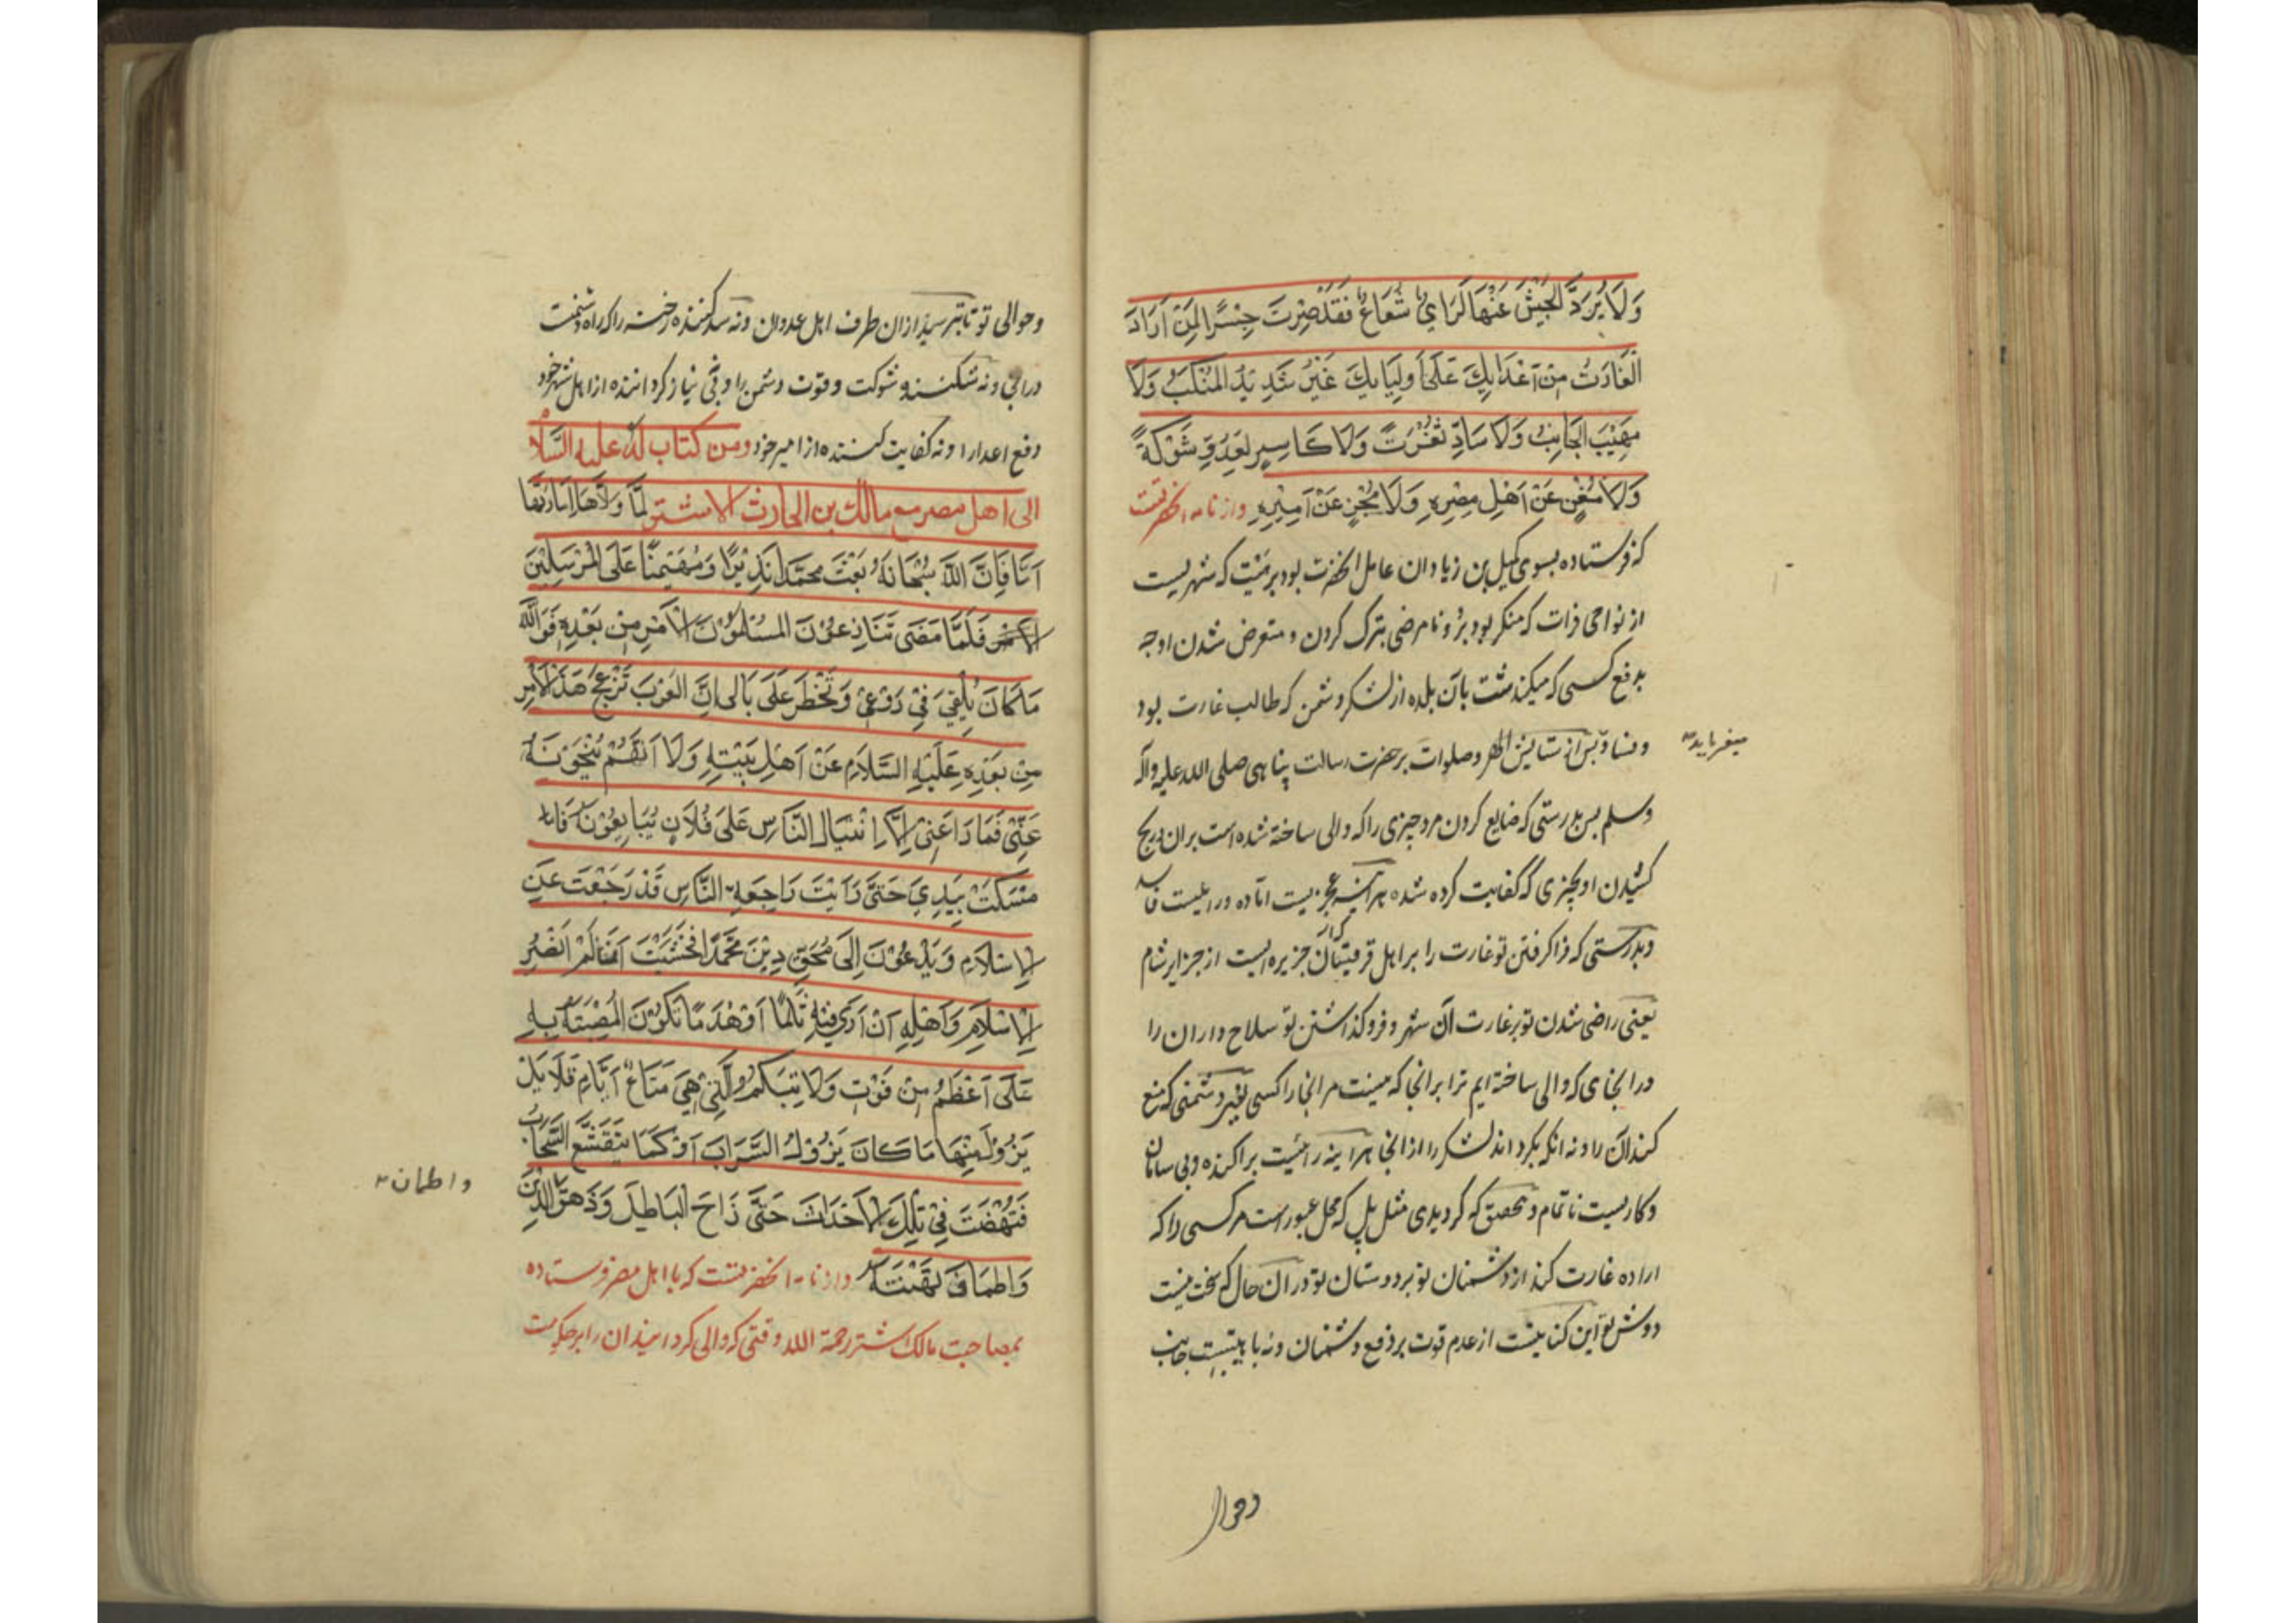 وَلَا يُرَدُّ الجَيْشَ عَنْهَا لَرَايٌ شَعَاعٌ فَقَدْ صِرْتَ جِسْرًا لِمَنْ اَرَادَ
الْغَارَتَ مِنْ اَعْدَايِكَ عَلَى اَولِيَايِكَ غَيْرَ شَدِيدُ المَنْكَبُ وَلَا
مَهِيْبَ الجَانِبُ وَلَا سَادٍّ ثُغْرَتً وَلَا كَاسِرٍ لِعَدُوٍّ شَوْكَةً
وَلَا مُغْنٍ عَنْ اَهْلِ مِصْرِهِ وَلَا مُجْزٍ عَنْ اَمِيْرِهِ وازنامه انحضرتست
که فرستاده بسوی کمیل بن زیاد وان عامل انحضرت بود بر هیت که شهریست
از نواحی فرات که منکر بود برو نامرضی بترک کردن و متعرض نشدن او جه
بدفع کسی که میکذشت بان بلده از لشکر دشمن که طالب غارت بود
و فساد پس از ستایش اله و صلوات بر حضرت رسالت پناهی صلی الله علیه وآله
میفرماید
وسلم پس بدرستی که ضایع کردن مرد چیزی را که والی ساخته شده است بران و رنج
کشیدن او بچیزی که کفایت کرده شده هراینه عجزیست آماده و رایست فاسد
وبدرستی که فراکرفتن تو غارت را بر اهل قرقیسا که ان جزیره ایست از جزایر شام
یعنی راضی شدن تو بر غارت آن شهر و فروکذاشتن تو سلاح داران را
در انجای که والی ساخته ایم ترا بر انجا که نیست مر انجا را کسی بغیر دشمنی که منع
کند آن را و نه انکه بکرداند لشکر را از انجا هراینه رائیست پراکنده و بی سامان
وکاریست ناتمام و بتحقیق که کردیدی مثل پل که محل عبور است مر کسی را که
اراده غارت کند از دشمنان تو بر دوستان تو در ان حال که سخت نیست
دوش تو این کنایتست از عدم قوت بر دفع دشمنان و نه با هیبتست جانب
وحوالی
وحوالی تو تا بترسند از ان طرف اهل عدوان و نه سد کننده رخنه را که راه دشمنست
درانی و نه شکننده شوکت و قوت دشمن را و نه بی نیاز کرداننده از اهل شهر خود
دفع اعدا را و نه کفایت کننده از امیر خود ومن کتاب له علیه السلام
الی اهل مصر مع مالک بن الحارث الاشتر لَمَّا وَلَّاهَا اِمَارَتَهَا
اَمَّا فَاِنَّ اللَّهَ سُبْحَانَهُ بَعَثَ محمَّدًا نَذِيْرًا وَمُهَيْمِنًا عَلَى الْمُرْسَلِيْنَ
فَلَمَّا مَضَى تَنَازِعُوْنَ المسْلِمُوْنَ الْاَمْرِ مِنْ بَعْدِهِ فَوَاللَّه
مَا كَانَ يُلْقِىَ فِىْ رَوْعِىْ وَتَخْطَرَ عَلَى بَالى اِنَّ العَرَبَ تَزْعِجُ هَذَ الْاَمْرِ
مِنْ بَعْدِهِ عَلَيْهِ السَّلَامِ عَنْ اَهْلِ بَيْتِهِ وَلَا اَنَّهُمْ مُنَحُّوْنَهُ
عَنِّىْ فَمَا رَاعَنِىْ اِلَّا اِنْثِيَالِ النَّاسِ عَلَى فُلَانٍ يُبَايِعُوْنَهُ فَا
مْسَكْتُ بِيَدِىَ حَتَّى رَاَيْتَ رَاجِعَة النَّاسِ قَدْ رَجَعْتَ عَنِ
الْاِسْلَامِ وَيَدْعُوْنَ اِلَى مُحَقِ دِيْنَ مُحَمَّدًا فَخَشَيْتَ اَنْصُرِ
الْاِسْلَامِ وَاَهْلِهِ اَنْ اَرَى فِيْهِ ثَلْمًا اَوْ هَدَمًا تَكُوْنَ المُصِيْبَتُهُ بِهِ
عَلَى اَعْظَمُ مِنْ فَوْتِ وَلَايَتِكُمُ الَّتِىْ هِىَ مَتَاعُ اَيَّامِ قَلَايِلَ
يَزُوْلَ مِنْهَا مَا كَانَ يَزُوْلُ السَّرَابَ اَوْ كَمَا يَتَقَشَّعِ السَّحَابُ
فَنَهَضْتَ فِىْ تِلْكَ الْاَحْدَاثَ حَتَّى زَاحَ الْبَاطِلَ وَزَهَقَ الدِّيْنَ
واطمان
وَاطمَانَ وازنامه انحضرتست که با اهل مصر فرستاده
بمصاحبت مالک اشتر رحمة الله وقتی که والی کردانیدان را بر حکومت